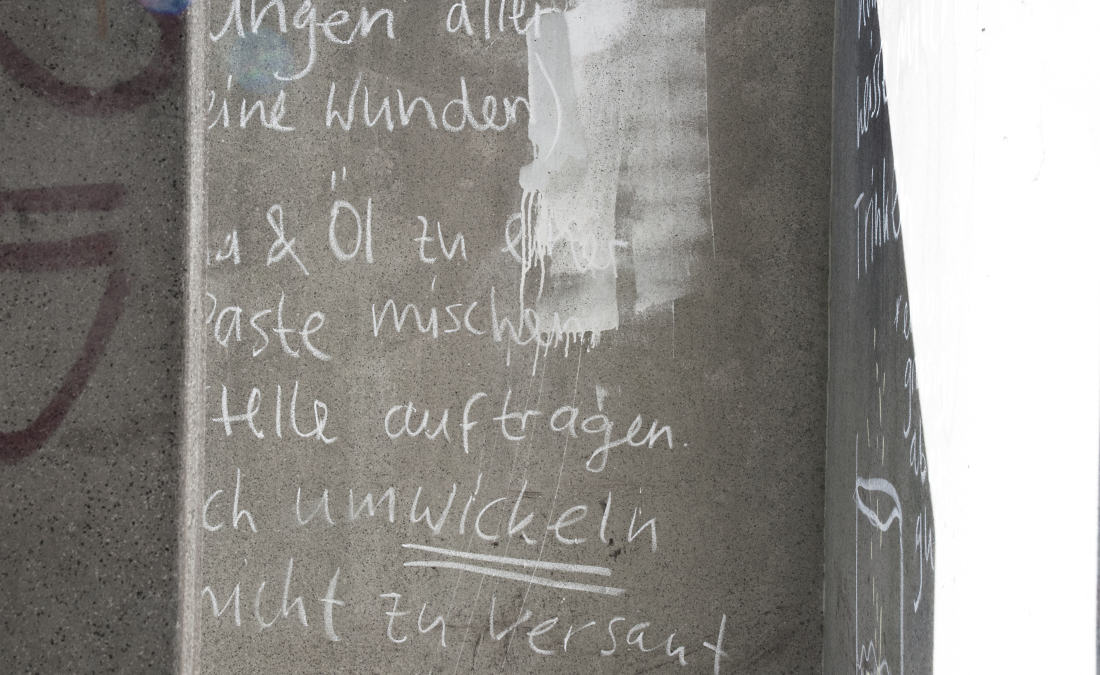 ungen aller
eine Wunden)
a & Öl zu einer
Paste mischen
telle auftragen.
ch umwickeln
nicht zu versaut